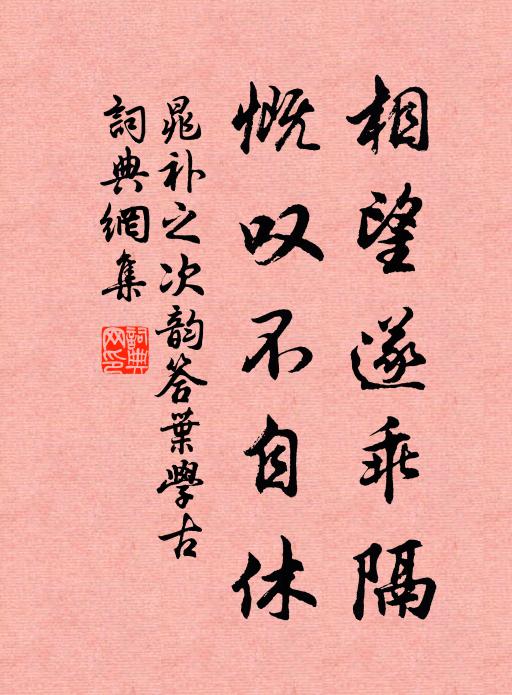 相望遂乖隔
慨叹不自休
晁补之次韵答葉學古
詞典網集
詞典
网印